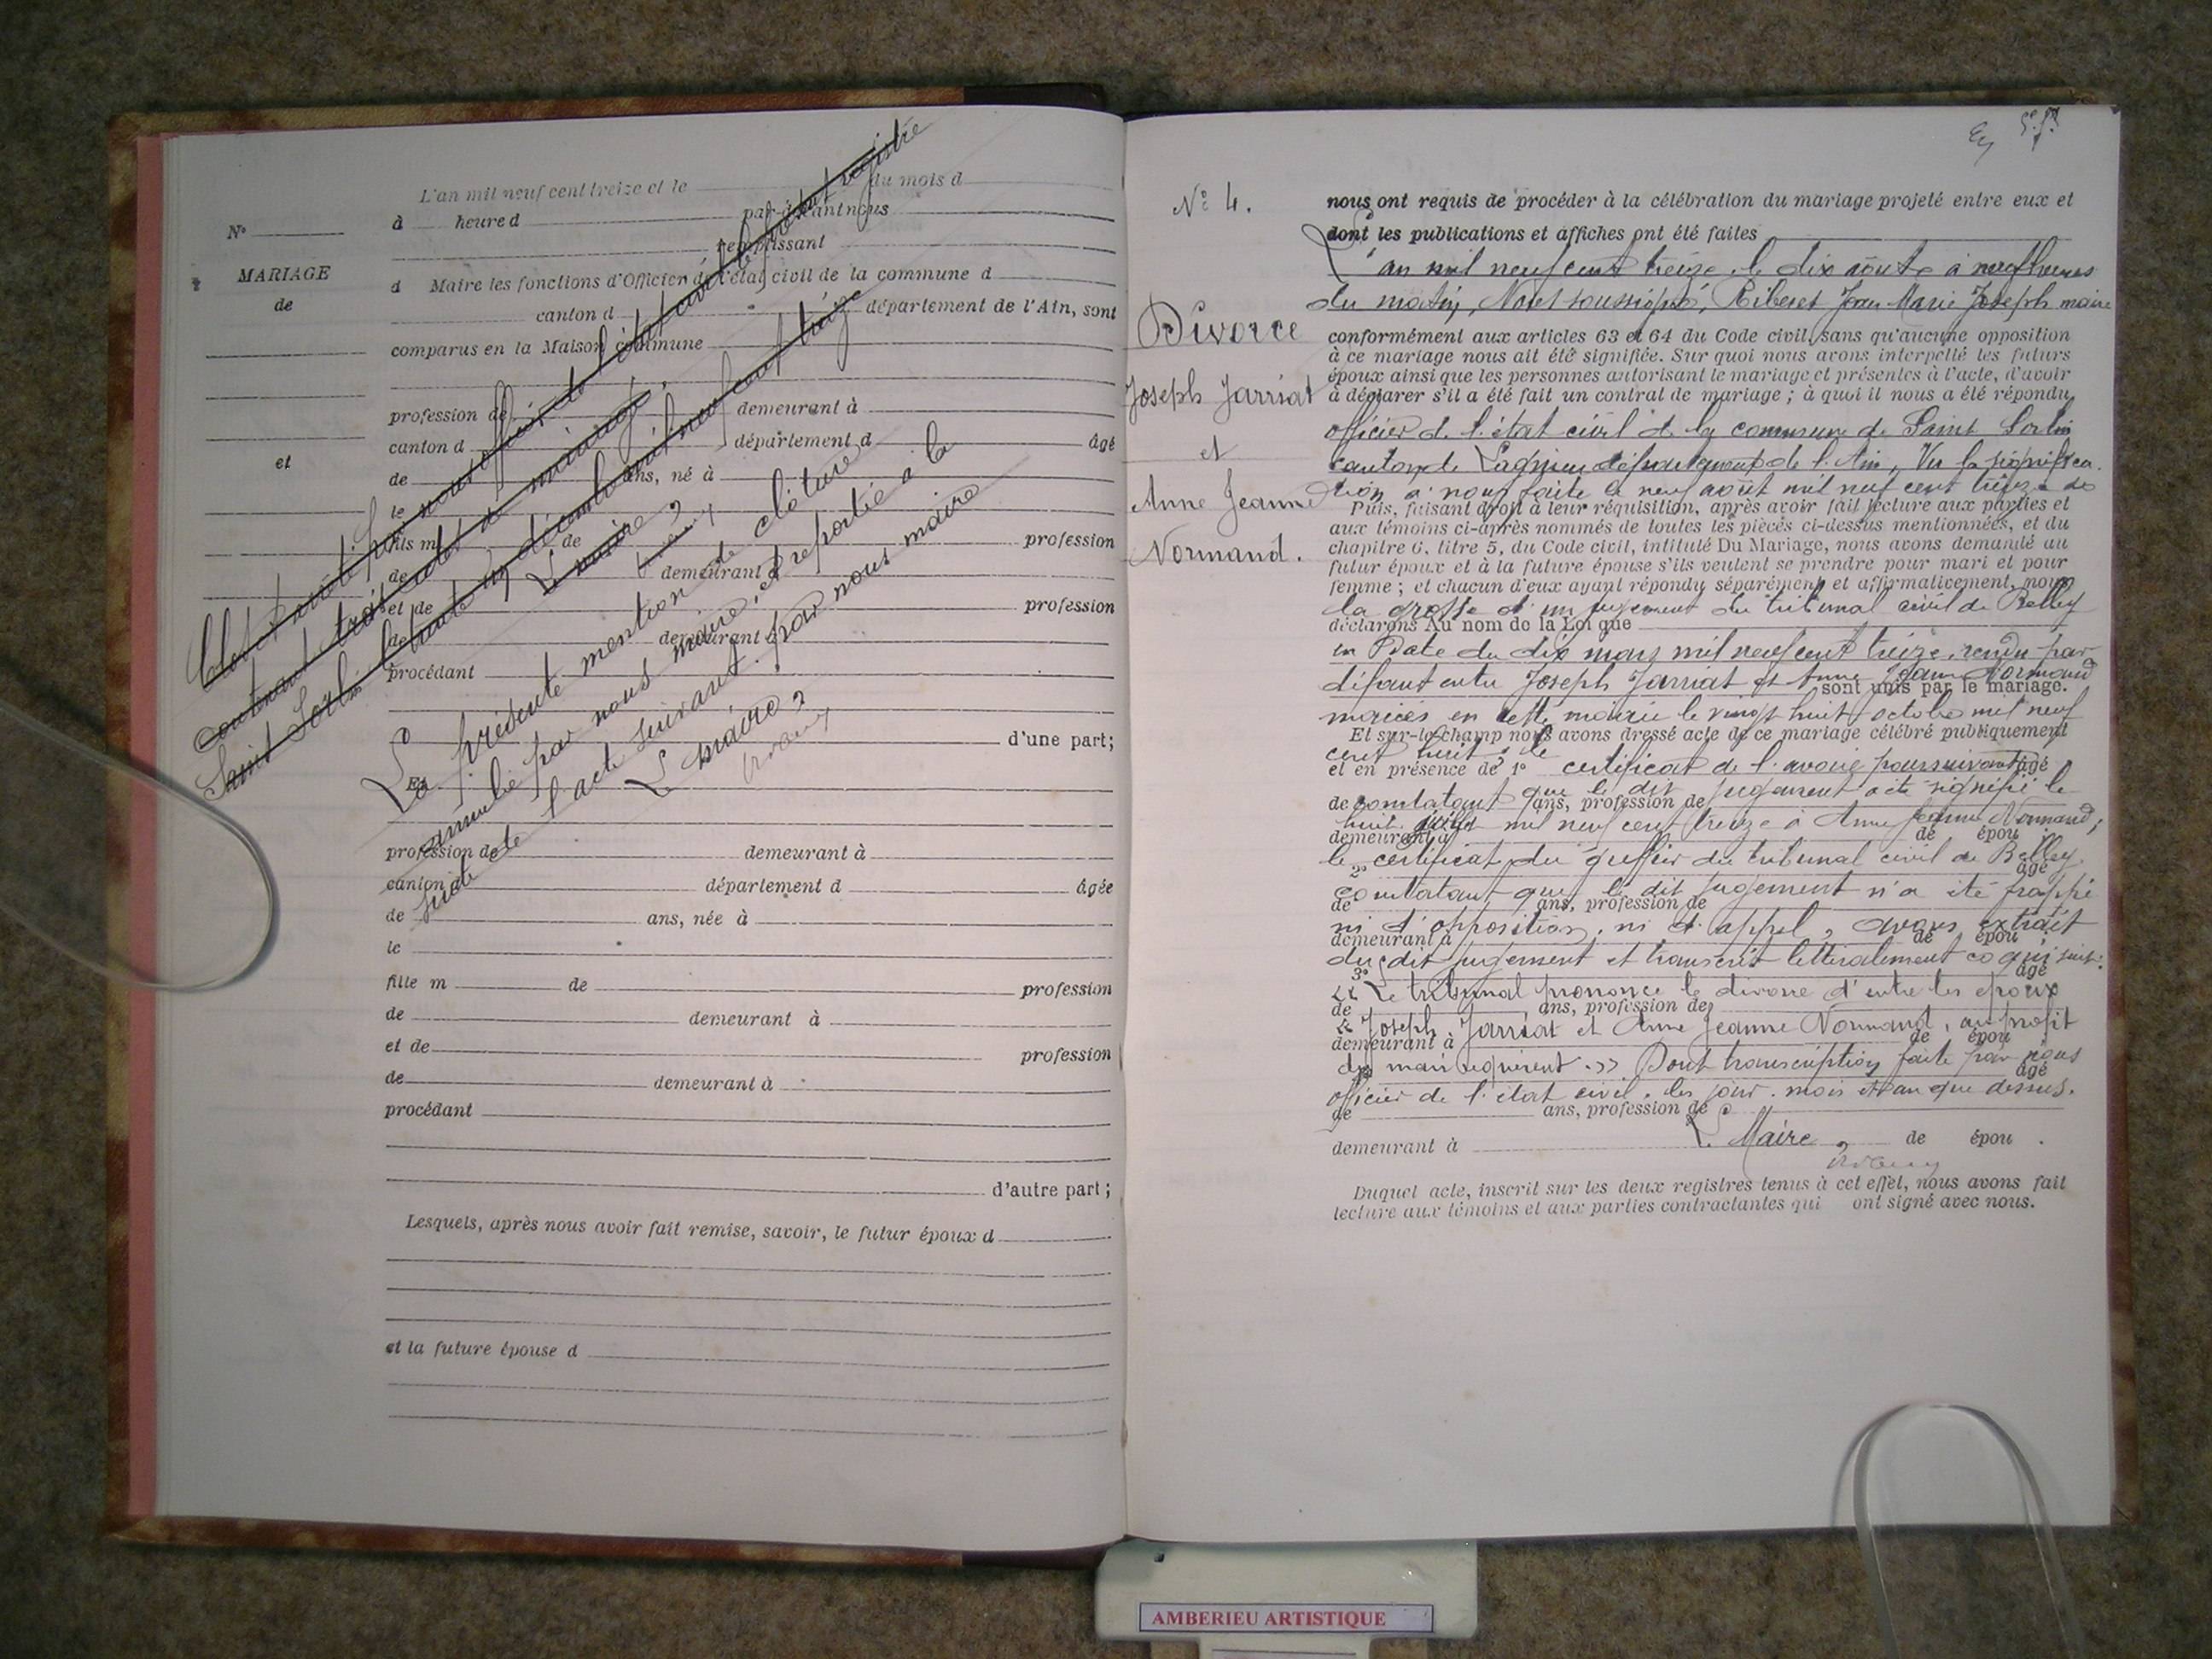 L'an mil neuf cent treize et le du mois d
à heure d par-devant nous
N°
remplissant
MARIAGE
de
d Maire les fonctions d'Officier de l'état civil de la commune d
canton d département de l'Ain, sont
comparus en la Maison commune
profession de demeurant à
canton d département d âgé
et
de ans, né à
le
fils m de profession
de demeurant à
et de profession
de demeurant à
procédant
d'une part;
Et
profession de demeurant à
canton d département d âgée
de ans, née à
le
fille m de profession
de demeurant à
et de profession
de demeurant à
procédant
d'autre part;
Lesquels, après nous avoir fait remise, savoir, le futur époux d
et la future épouse d
Clos et arrêté par nous officier de l'état civil le présent registre
contenant trois actes de mariage.
Saint Sorlin le trente un décembre mil neuf cent treize
Le maire,
La présente mention de clôture
annulée par nous maire, est reportée à la
suite de l'acte suivant. par nous maire
Le maire,
N° 4.
Divorce
Joseph Jarriat
et
Anne Jeanne
Normand.
nous ont requis de procéder à la célébration du mariage projeté entre eux et
dont les publications et affiches ont été faites
L'an mil neuf cent treize, le dix août à neuf heures
du matin, Nous soussigné, Jean Marie Joseph maire
conformément aux articles 63 et 64 du Code civil, sans qu'aucune opposition
à ce mariage nous ait été signifiée. Sur quoi nous avons interpellé les futurs
époux ainsi que les personnes autorisant le mariage et présentes à l'acte, d'avoir
à déclarer s'il a été fait un contrat de mariage ; à quoi il nous a été répondu
officier de l'état civil de la commune de Saint Sorlin
canton de Lagnieu département de l'Ain, Vu la significa
tion à nous faite le neuf août mil neuf cent treize de
Puis, faisant droit à leur réquisition, après avoir fait lecture aux parties et
aux témoins ci-après nommés de toutes les pièces ci-dessus mentionnées, et du
chapitre 6, titre 5, du Code civil, intitulé Du Mariage, nous avons demandé au
futur époux et à la future épouse s'ils veulent se prendre pour mari et pour
femme ; et chacun d'eux ayant répondu séparément et affirmativement, nous
la grosse d'un jugement du tribunal civil de Belley
déclarons Au nom de la Loi que
en Date du dix mars mil neuf cent treize, rendu par
défaut entre Joseph Jarriat et Anne Jeanne Normand
sont unis par le mariage.
mariés en cette mairie le vingt huit octobre mil neuf
Et sur-le-champ nous avons dressé acte de ce mariage célébré publiquement
cent huit ; le
et en présence de 1° certificat de l'avoué poursuivant âgé
de constatant que le dit jugement a été signifié le
ans, profession de
huit mil neuf cent treize à Anne Jeanne Normand ;
demeurant à de épou
le certificat du greffier du tribunal civil de Belley
2° âgé
constatant que le dit jugement n'a été frappé
de ans, profession de
ni d'opposition, ni d'appel, avons extrait
demeurant à de épou
du dit jugement et transcrit littéralement ce qui suit :
3° âgé
« Le tribunal prononce le divorce d'entre les époux
de ans, profession de
« Joseph Jarriat et Anne Jeanne Normand, au profit
demeurant à de épou
du mari requérent. » Dont transcription faite par nous
âgé
officier de l'état civil, les jour, mois et an que dessus.
de ans, profession de
demeurant à Le Maire, de épou .
Duquel acte, inscrit sur les deux registres tenus à cet effet, nous avons fait
lecture aux témoins et aux parties contractantes qui ont signé avec nous.
AMBERIEU ARTISTIQUE